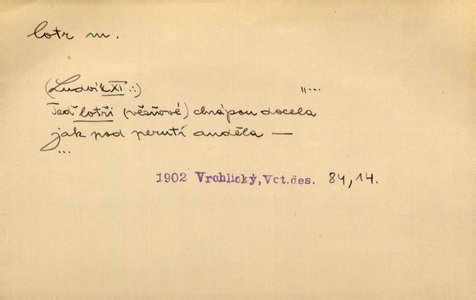 lotr m.
(Ludvík XI.:) "...
Teď lotři (věžňové) chrápou docela
jak pod perutí anděla —
...
1902 Vrchlický, Vct.des. 84,14.